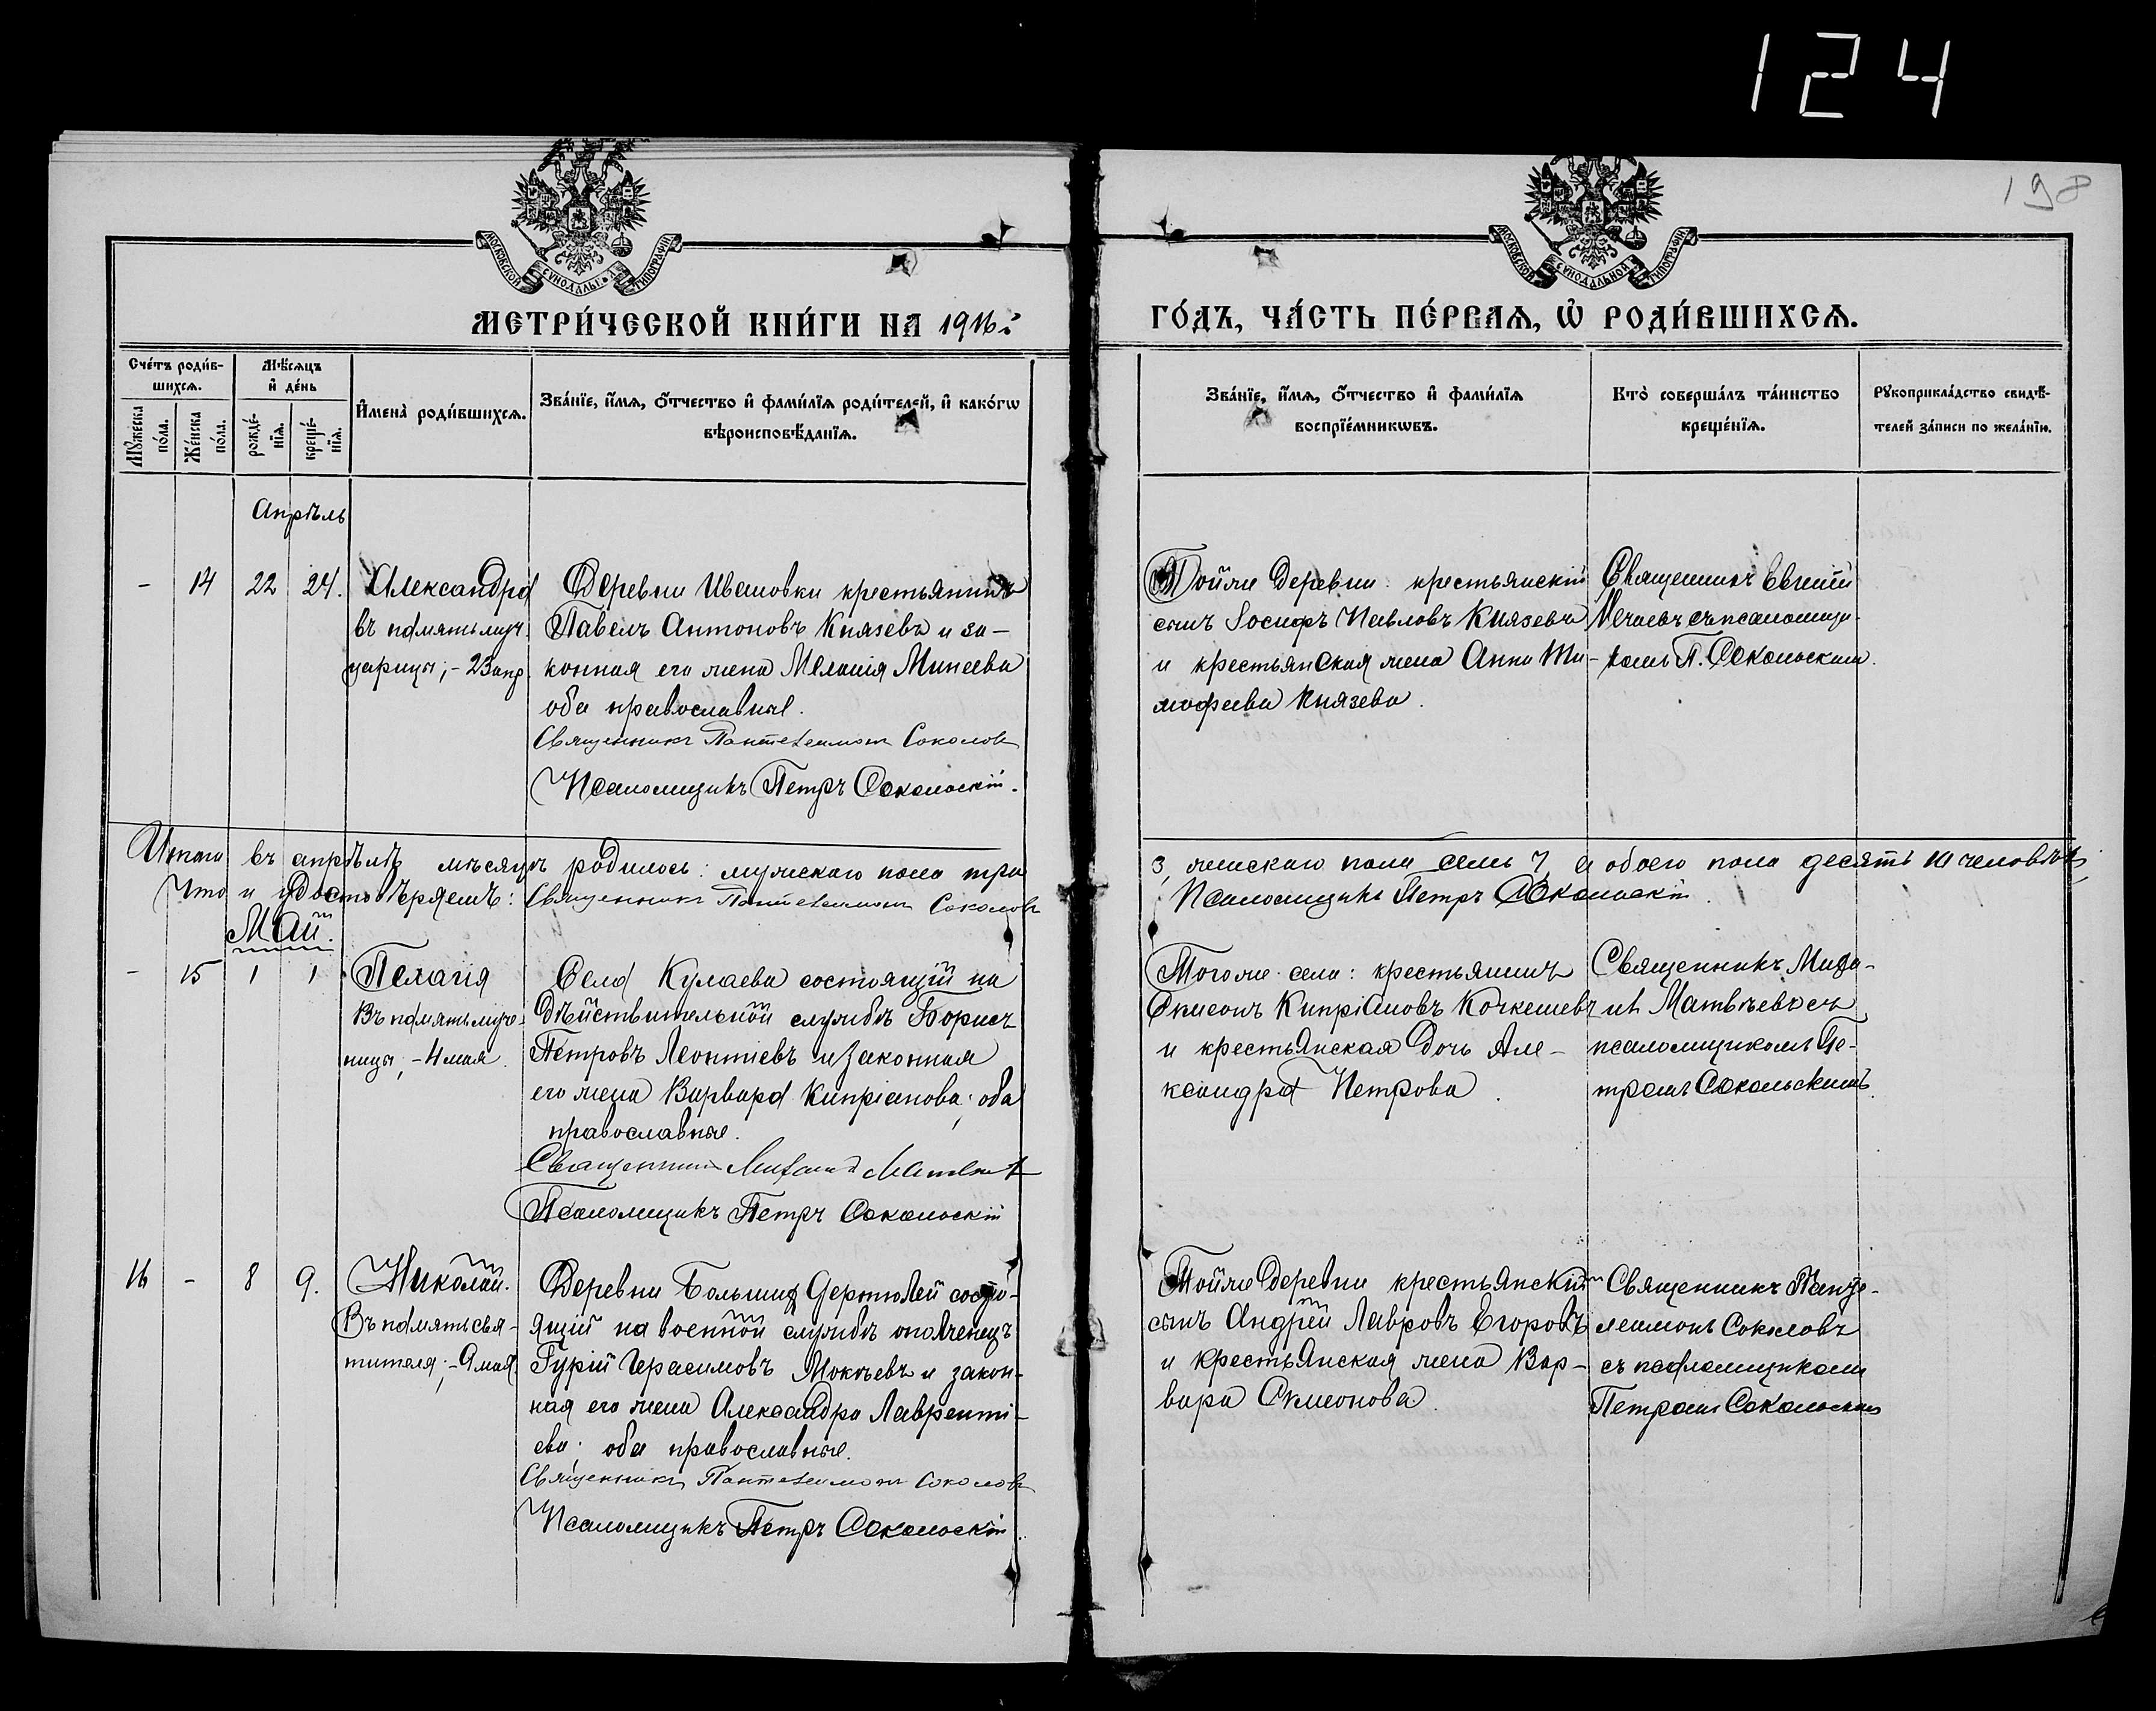 124
198
МОСКОВСКОЙ СѴНОДАЛЬНОЙ ТИПОГРАФІИ
МОСКОВСКОЙ СѴНОДАЛЬНОЙ ТИПОГРАФІИ
МЕТРИ́ЧЕСКОЙ КНИ́ГИ НА 1916 г
ГО́ДЪ, ЧА́СТЬ ПЕ́РВАѦ, Ѡ РОДИ́ВШИХСѦ.
Сче́тъ роди́в-
шихсѧ.
Мѣ́сѧцъ
и҆ де́нь
Мꙋжеска
по́ла.
Же́нска
по́ла.
рожде́-
нїѧ.
креще́-
нїѧ.
И҆мена̀ роди́вшихсѧ.
Зва́нїе, и҆́мѧ, ѻ҆́тчество и҆ фами́лїѧ роди́телей, и҆ како́гѡ
вѣроисповѣ́данїѧ.
Зва́нїе, и҆́мѧ, ѻ҆́тчество и҆ фами́лїѧ
воспрїе́мникѡвъ.
Кто̀ соверша́лъ та́инство
креще́нїѧ.
Рꙋкоприкла́дство свидѣ́-
телей за́писи по жела́нїю.
Апрѣль
- 14 22 24. Александра
въ память муч.
царицы; - 23 апр.
Деревни Ивановки крестьянинъ
Павелъ Антоновъ Князевъ и за-
конная его жена Меланія Минеева
оба православные.
Священникъ Пантелеимонъ Соколовъ
Псаломщикъ Петръ Сокольскій.
Тойже деревни: крестьянскій
сынъ Іосифъ Павловъ Князевъ
и крестьянская жена Анна Ти-
мофеева Князева.
Священникъ Евгеній
съ псаломщи-
комъ П. Сокольскимъ.
Итого въ апрѣлѣ мѣсяцѣ родилось: мужскаго пола три
3, женскаго пола семь 7, а обоего пола десять 10 человѣкъ,
Что и удостовѣряемъ: Священникъ Пантелеимонъ Соколовъ
Псаломщикъ Петръ Сокольскій.
Май.
- 15 1 1 Пелагія
Въ память муче-
ницы, - 4 мая.
Села Кулаева состоящій на
дѣйствительной службѣ Борисъ
Петровъ Леонтіевъ и законная
его жена Варвара Кипріанова; оба
православные.
Священникъ Михаилъ Матвѣевъ
Псаломщикъ Петръ Сокольскій
Тогоже села: крестьянинъ
Симеонъ Кипріановъ Кочкешевъ
и крестьянская дочь Але-
ксандра Петрова.
Священникъ Миха-
илъ Матвѣевъ съ
псаломщикомъ Пе-
тромъ Сокольскимъ.
16 - 8 9. Николай.
Въ память свя-
тителя; - 9 мая.
Деревни Большихъ Дертюлей состо-
ящій на военной службѣ ополченецъ
Гурій Герасимовъ Мокѣевъ и закон-
ная его жена Александра Лаврентi-
ева; оба православные.
Священникъ Пантелеимонъ Соколовъ
Псаломщикъ Петръ Сокольскій.
Тойже деревни крестьянскій
сынъ Андрей Лавровъ Егоровъ
и крестьянская жена Вар-
вара Симеонова.
Священникъ Панте-
леимонъ Соколовъ
съ псаломщикомъ
Петромъ Сокольскимъ